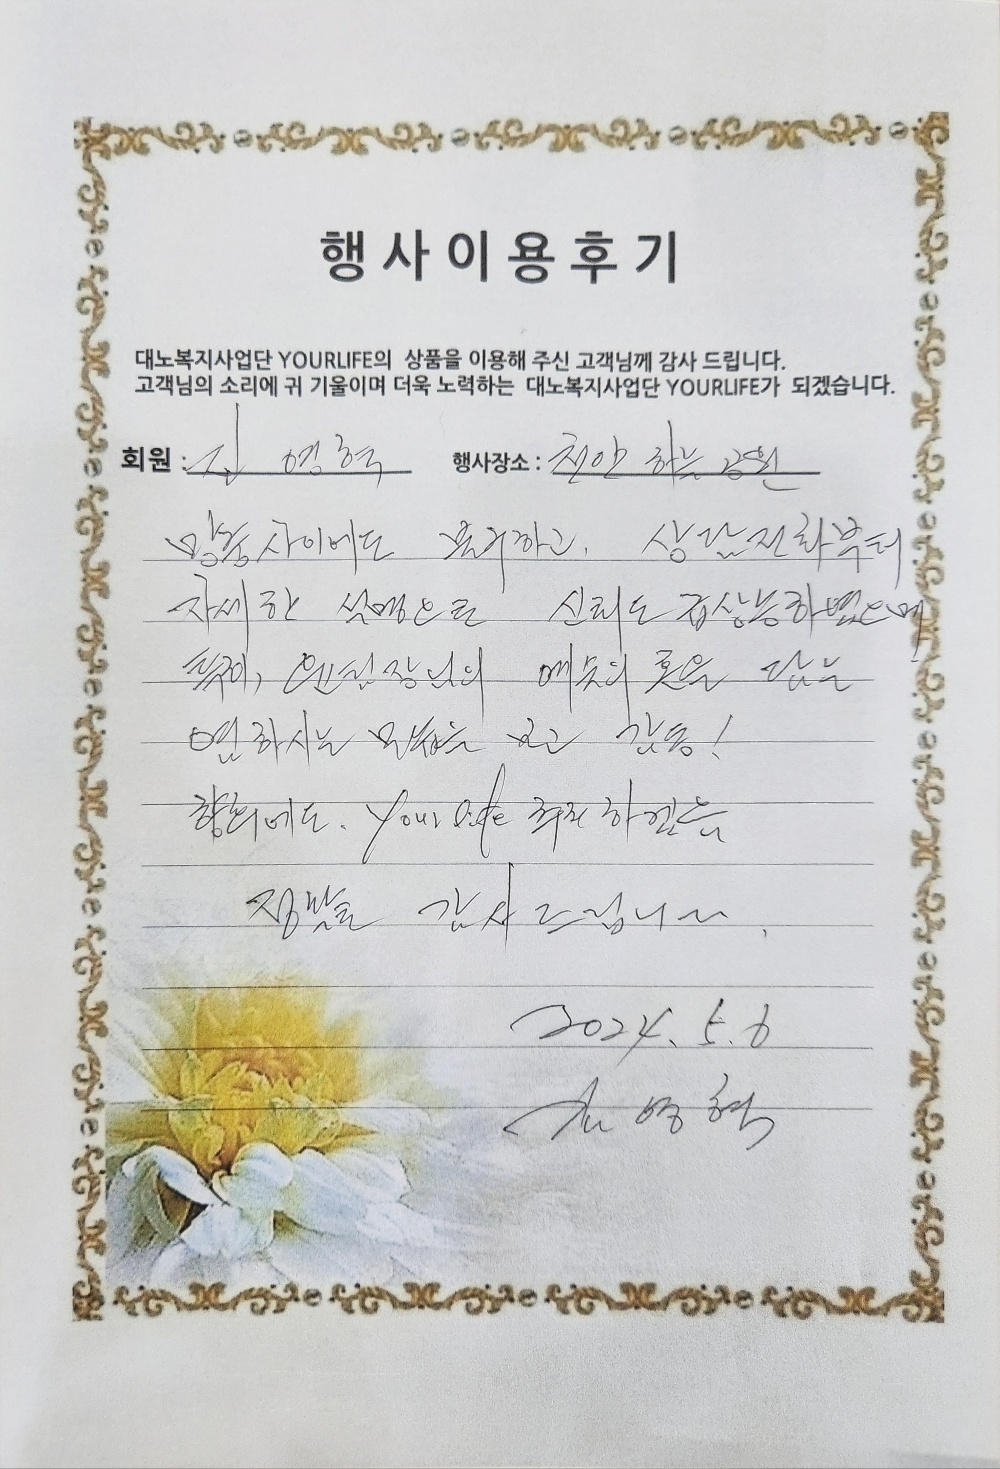 행사이용후기
대노복지사업단 YOURLIFE의 상품을 이용해 주신 고객님께 감사 드립니다.
고객님의 소리에 귀 기울이며 더욱 노력하는 대노복지사업단 YOURLIFE가 되겠습니다.
회원 : 영혁 행사장소 : 천안 하늘공원
사이에도 하고, 상담전화부터
자세한 설명으로 신뢰도
특히, 의 혼을 담는
염하시는 모습을 보고 감동!
향후에도. Your life 하겠음
정말로 감사드립니다.
2024. 5. 6
영혁